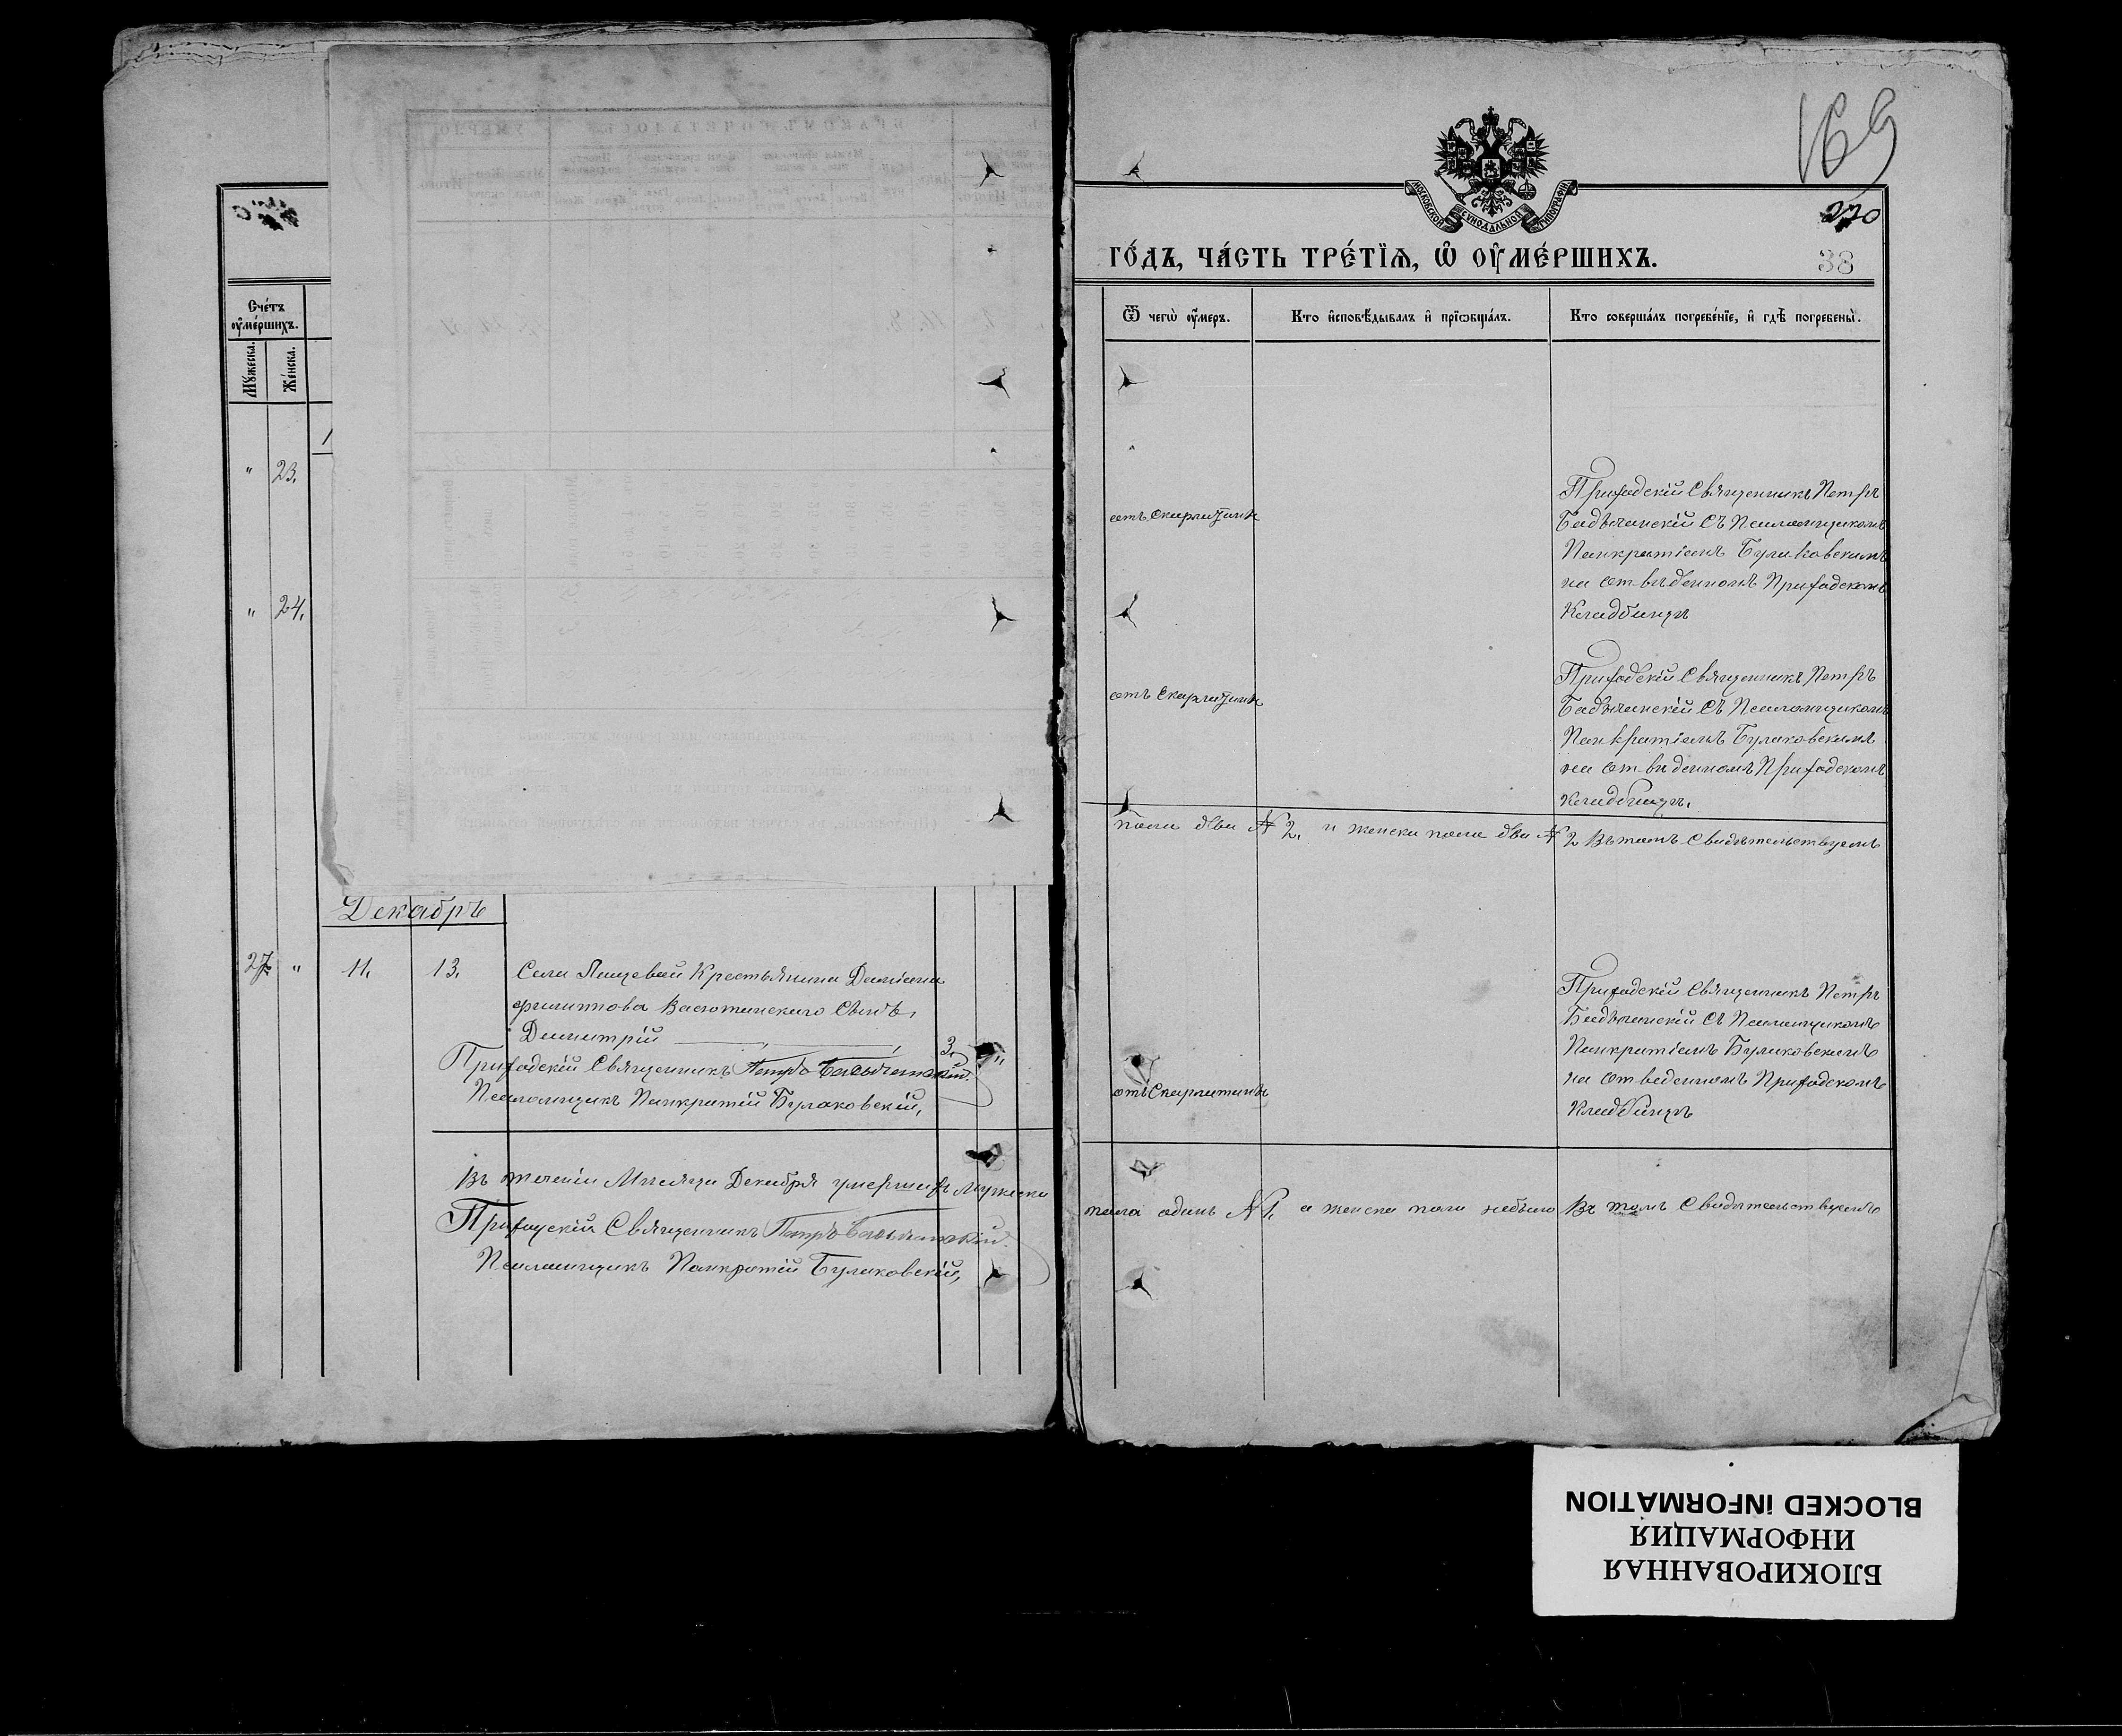 Счетъ
оумершихъ.
Мужеска.
Женска.
" 23.
" 24.
Декабрь
27. " 11. 13. Села Пищевой Крестьянина Даміана
Филиппова Васютинскаго Сынъ,
Димитрій 3.
Приходскій Священникъ Петръ
Псаломщикъ Панкратій Булаковскій,
Въ теченіи Месяца Декабря умершихъ мужеска
Приходскій Священникъ Петръ
Псаломщикъ Панкратій Булаковскій,
169
МОСКОВСКОЙ СѴНОДАЛЬНОЙ ТИПОГРАФІИ
270
ГОДЪ, ЧАСТЬ ТРЕТІѦ, Ѡ ОУМЕРШИХЪ.
38
Ѿ чегѡ оумеръ.
Кто исповѣдывалъ и прїѡбщалъ.
Кто совершалъ погребеніе, и гдѣ погребены.
Приходскій Священникъ Петръ
отъ Скарлатины
съ Псаломщикомъ
Панкратіемъ Булаковскимъ
на отведенномъ Приходскомъ
Кладбищѣ
Приходскій Священникъ Петръ
отъ Скарлатины
съ Псаломщикомъ
Панкратіемъ Булаковскимъ
на отведенномъ Приходскомъ
Кладбищѣ.
пола два № 2. и женска пола два № 2 Въ томъ Свидѣтельствуемъ
Приходскій Священникъ Петръ
съ Псаломщикомъ
Панкратіемъ Булаковскимъ
отъ Скарлатины
на отведенномъ Приходскомъ
Кладбищѣ
пола одинъ № 1. а женска пола небыло Въ томъ Свидѣтельствуемъ
БЛОКИРОВАННАЯ
ИНФОРМАЦИЯ
BLOCKED iNFORMATION